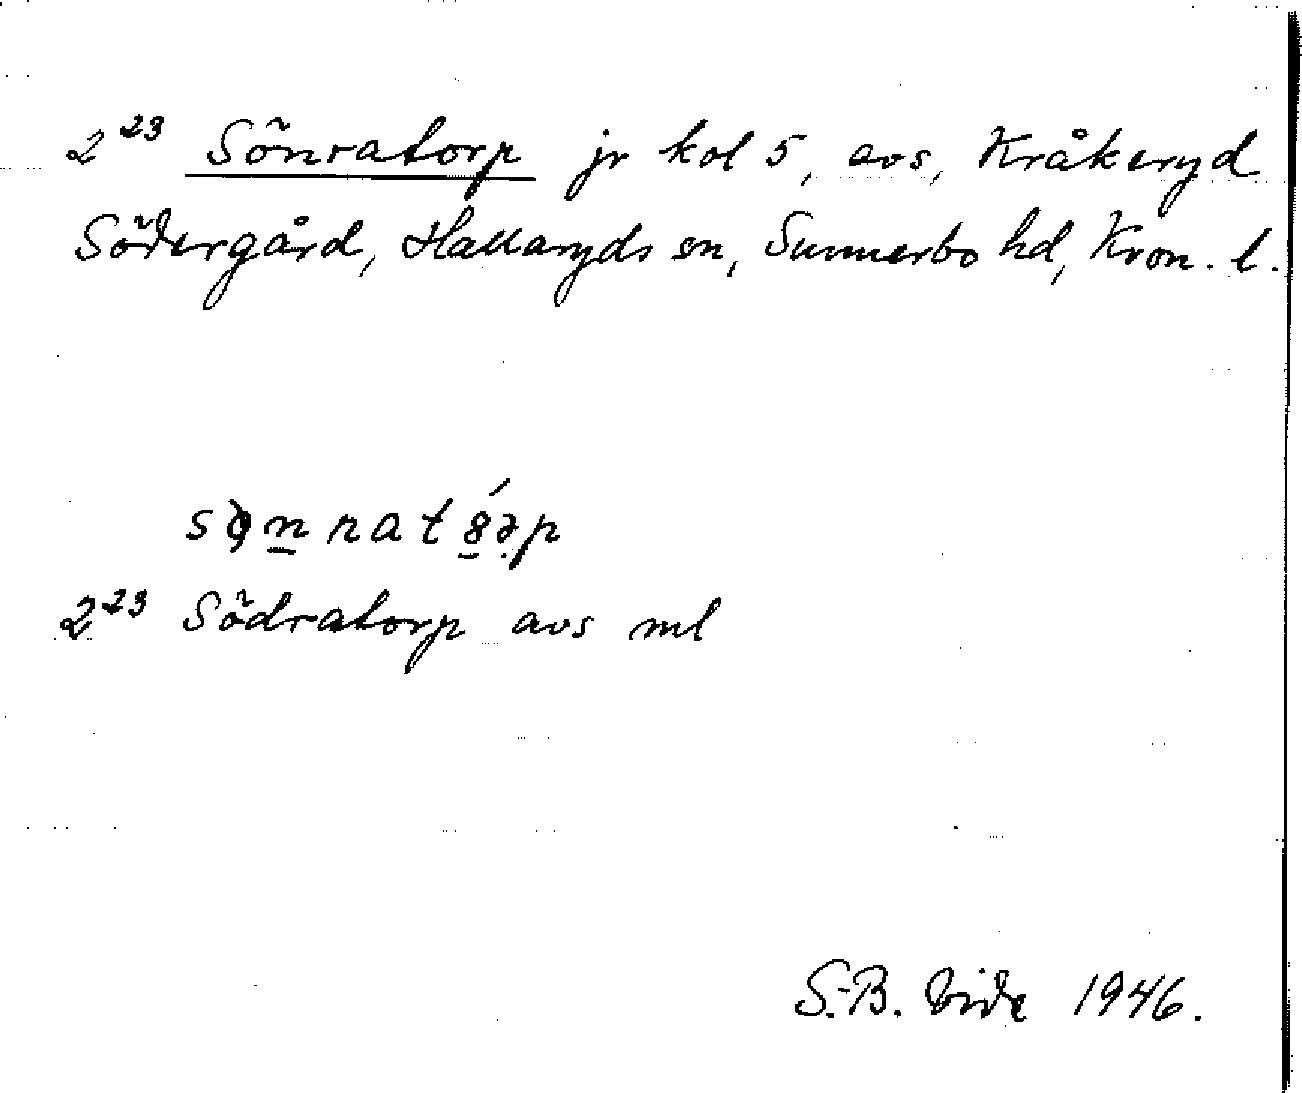 2²³ Sönratorp jr kol 5, avs, Kråkeryd
Södergård, Hallaryds sn, Sunnerbo hd, Kron. l.
2²³ Södratorp avs ml
S.-B. Vide 1946.